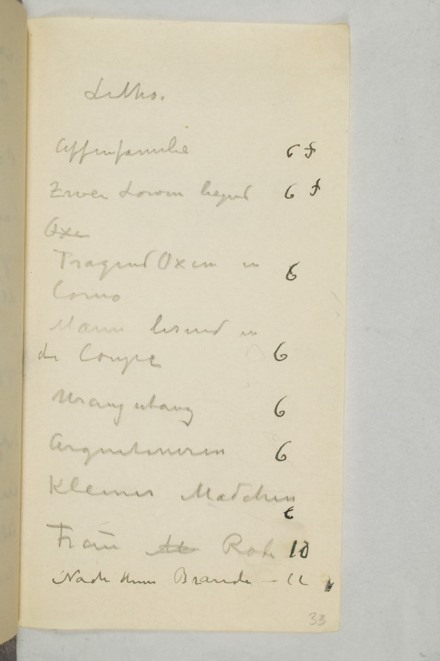 Litho.
Affenfamilie 6 F
Zwei Löwen liegend 6 F
Oxe
Tragend Oxen in 6
Como
Mann lesend in
der Coupe 6
Urangutang 6
6
Kleines Mädchen
6
Frau Roh 10
Nach dem Brande - 12
33